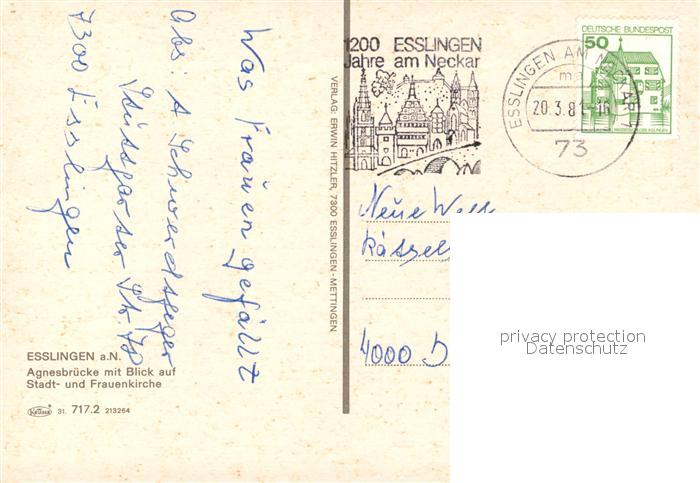 Was Frauen gefällt
Abs: A Schwerdtfeger
Stuttgarter Str. 78
7300 Esslingen
ESSLINGEN a.N.
Agnesbrücke mit Blick auf
Stadt- und Frauenkirche
Krüger 31. 717.2 213264
VERLAG: ERWIN HITZLER, 7300 ESSLINGEN-METTINGEN
1200 ESSLINGEN
Jahre am Neckar
ESSLINGEN AM NECKAR 1
20.3.81-16
73
DEUTSCHE BUNDESPOST
50
Neue Welt
Rätsel
4000 D
privacy protection
Datenschutz